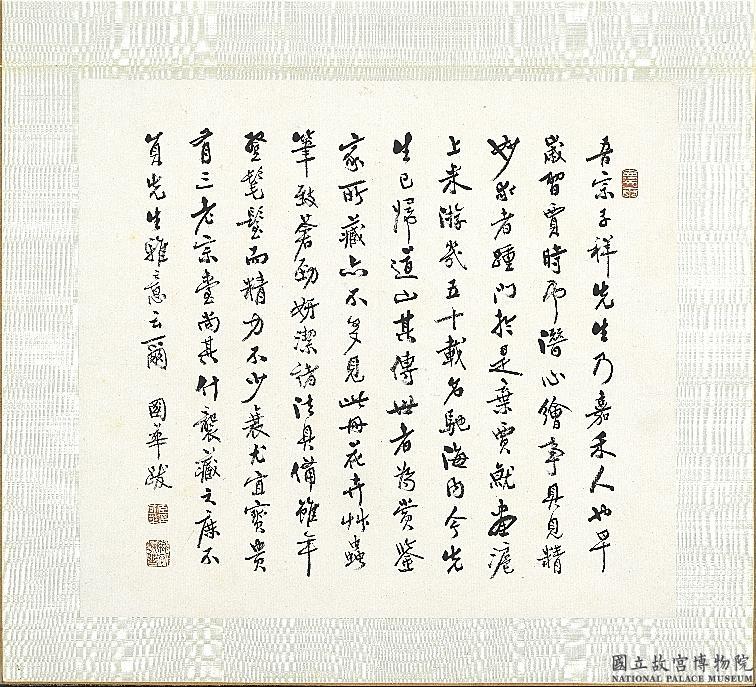 吾宗子祥先生乃嘉禾人也早
歲習賈時即潛心繪事具見精
妙求者踵門於是棄賈就畫滬
上來游幾五十載名馳海內今先
生已歸道山其傳世者為賞鑒
家所藏亦不多見此冊花卉艸蟲
筆致蒼勁妍潔諸法具備雖年
登髦而精力不少衰尤宜寶貴
有三老宗臺尚其什襲藏之庶不
負先生雅意云爾 國華跋
國立故宮博物院
NATIONAL PALACE MUSEUM